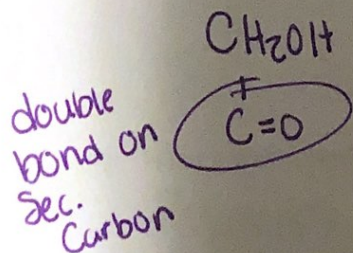 CH₂OH
C=O
double
bond on
Sec.
Carbon